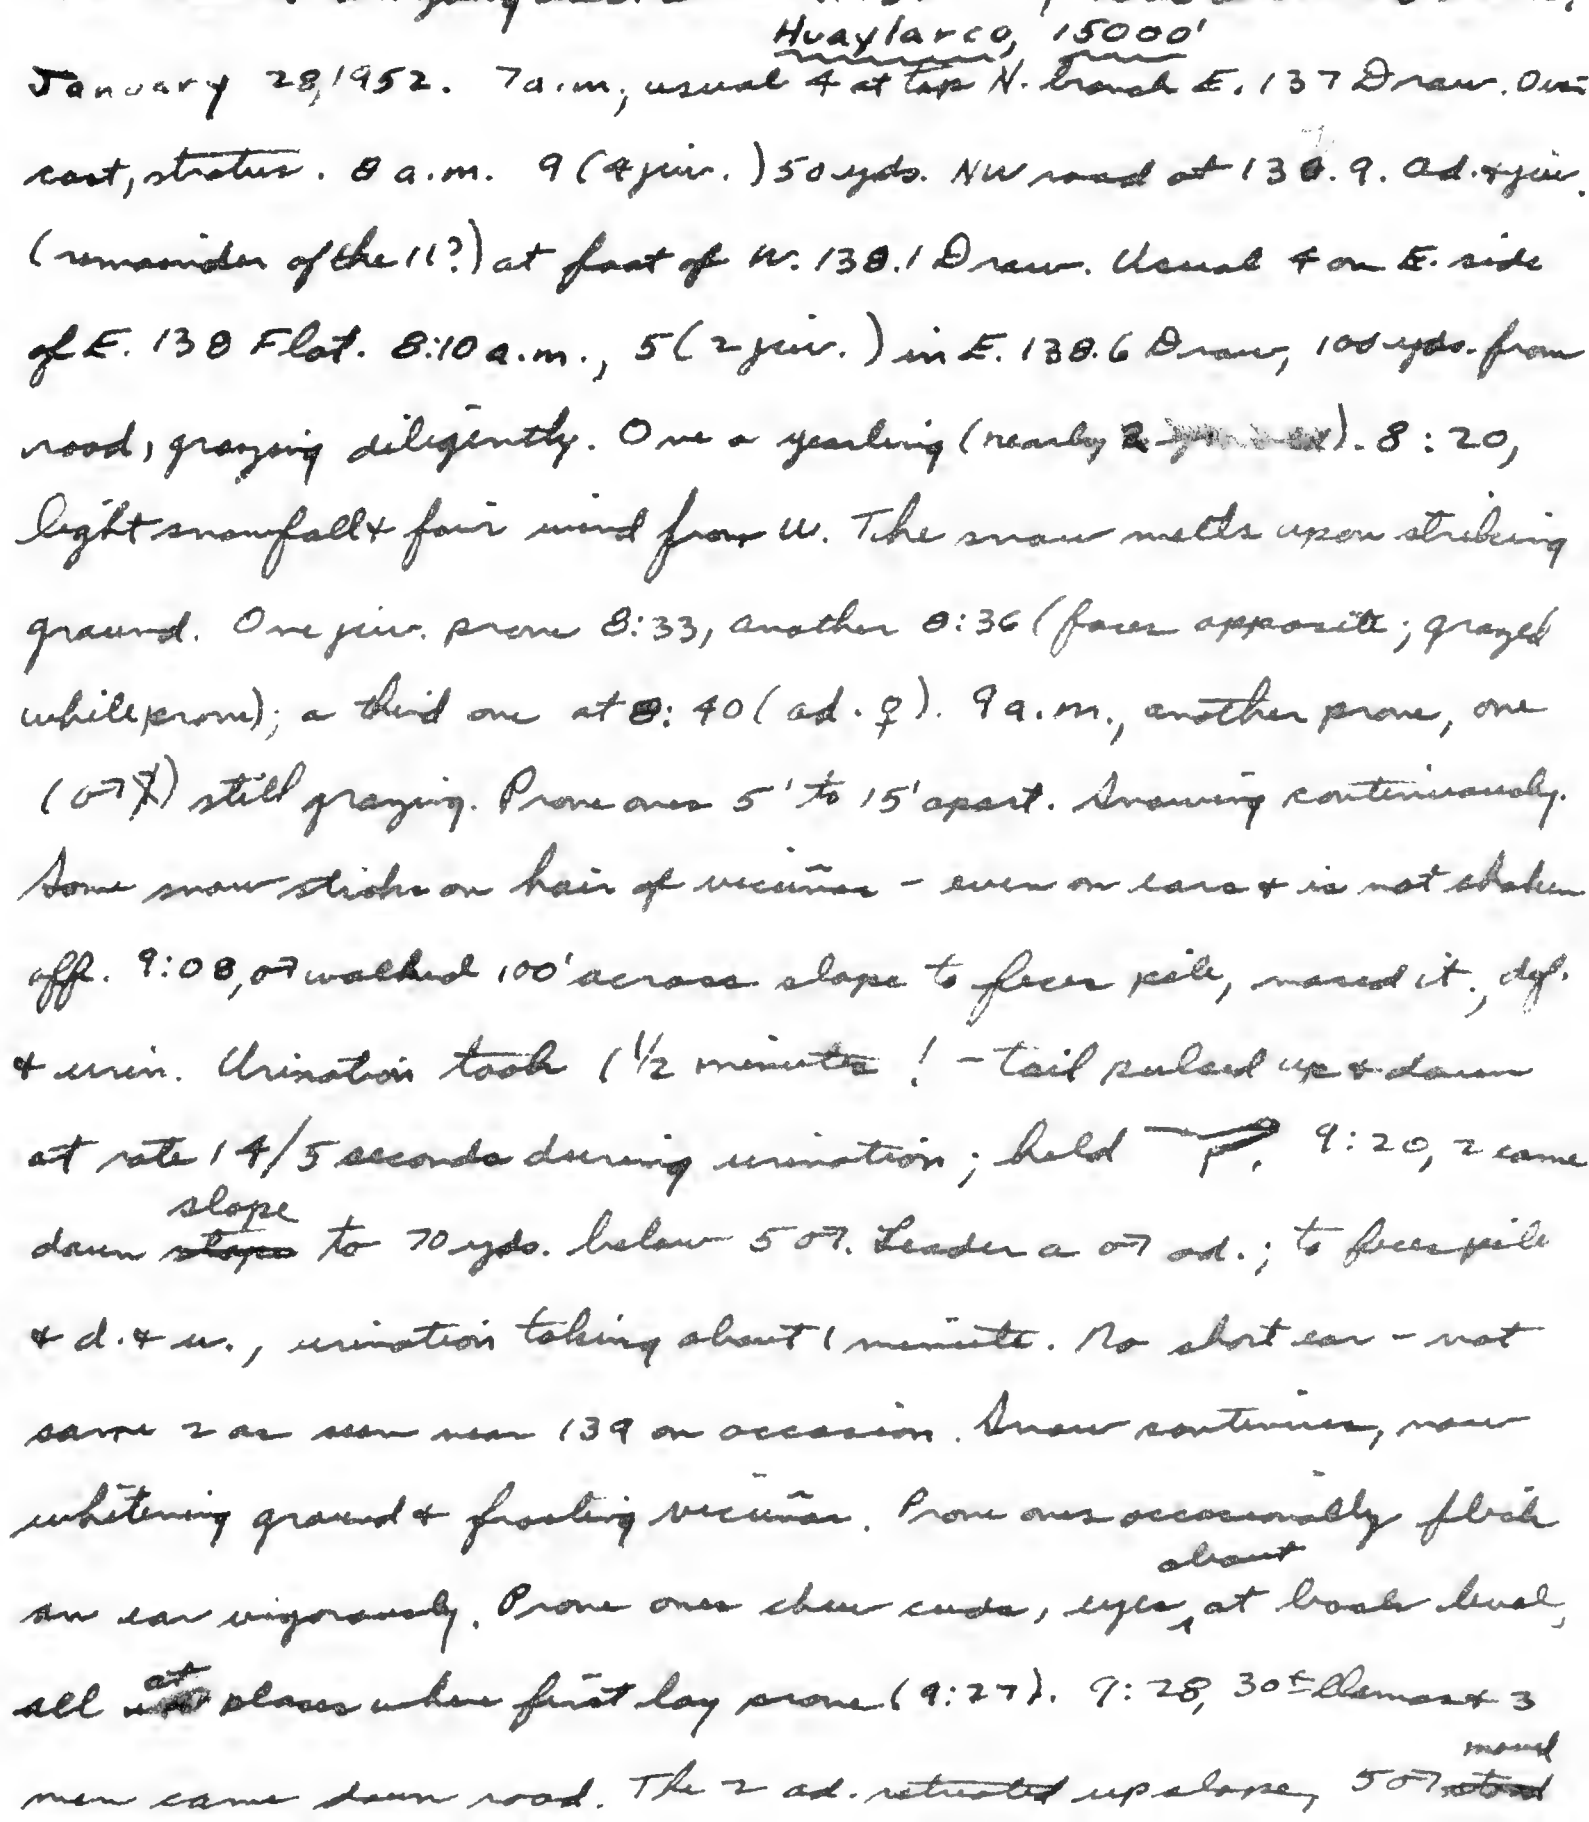 Huaylarco, 15000'
January 28, 1952. 7 a.m., usual 4 at top N. branch E. 137 Draw. Over
cast, stratus. 8 a.m. 9 (4 juv.) 50 yds. NW road at 138.9. Ad. & juv.
(remainder of the 11?) at foot of W. 138.1 Draw. Usual 4 on E. side
of E. 138 Flat. 8:10 a.m., 5 (2 juv.) in E. 138.6 Draw, 100 yds. from
road, grazing diligently. One a yearling (nearly 2). 8:20,
light snowfall & fair wind from W. The snow melts upon striking
ground. One juv. prone 8:33, another 8:36 (faces opposite; grazed
while prone); a third one at 8:40 (ad. ♀). 9 a.m., another prone, one
(♂) still grazing. Prone ones 5' to 15' apart. Snowing continuously.
Some snow sticks on hair of vicuñas - even on ears & is not shaken
off. 9:08, ♂ walked 100' across slope to feces pile, nosed it, def.
& urin. Urination took 1 1/2 minutes! - tail pulsed up & down
at rate 14/5 seconds during urination; held . 9:20, 2 came
down slope to 70 yds. below 5 ♂. Leader a ♂ ad.; to feces pile
& d. & u., urination taking about 1 minute. No short ear - not
same 2 as seen near 139 on occasion. Snow continues, now
whitening ground & frosting vicuñas. Prone ones occasionally flick
an ear vigorously. Prone ones chew cuds, eyes about at back level,
all at places where first lay prone (9:27). 9:28, 30± llamas & 3
men came down road. The 2 ad. retreated up slope, 5 ♂ moved